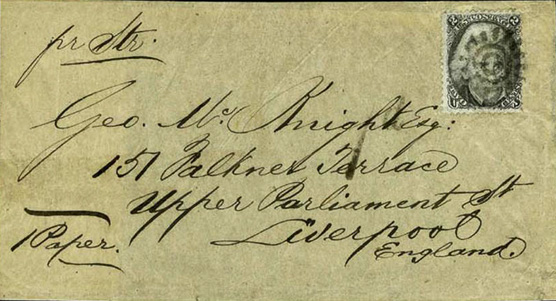 pr Str.
Geo. McKnight Esq:
157 Falkner Terrace
Upper Parliament St
Liverpool
England.
1 Paper.